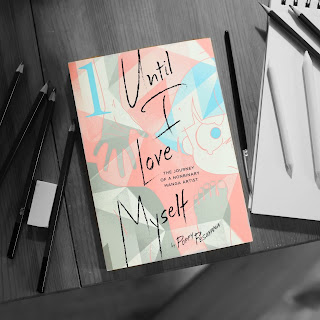 1
Until
I
Love
THE JOURNEY
OF A NONBINARY
MANGA ARTIST
Myself
by POPPY PESUYAMA